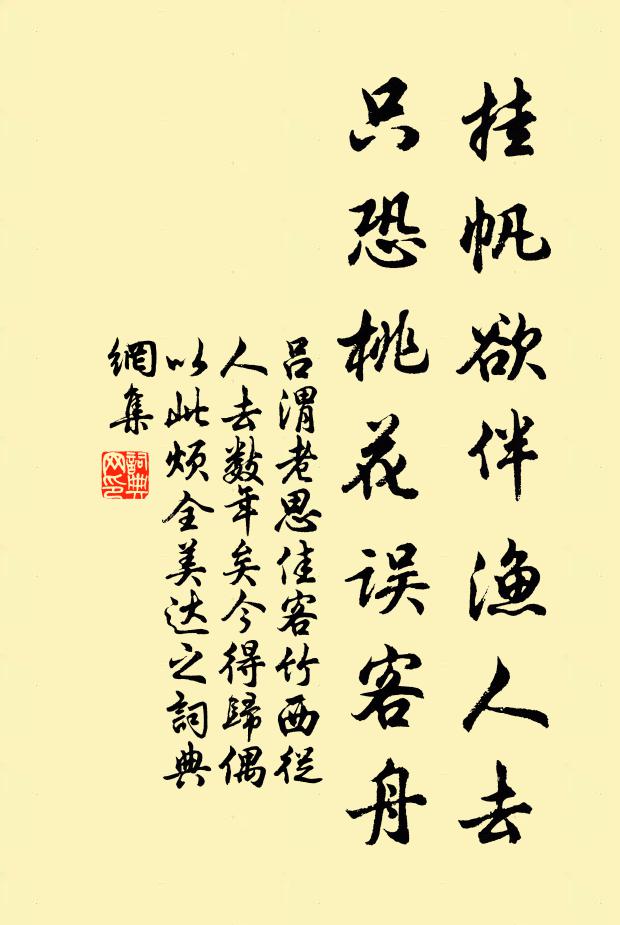 挂帆欲伴渔人去
只恐桃花误客舟
吕渭老思佳客竹西从
人去数年矣今得歸偶
以此烦全美达之詞典
網集
詞典网印